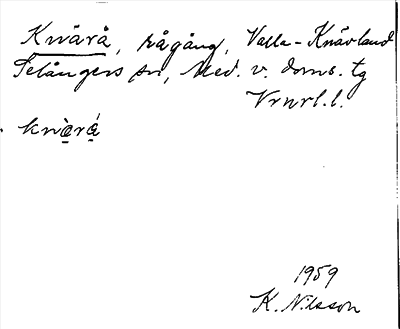 Knårå, rågång, Valla-Knävland
Selångers sn, Med. v. doms. tg
Vrnrl.l.
knàrá
1959
K. Nilsson